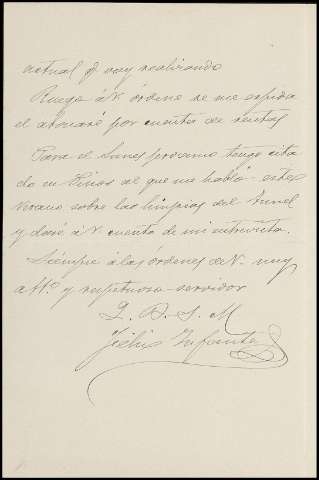 actual q voy realizando
Ruego á V. ordene se me expida
el abonaré por cuenta de rentas
Para el lunes proximo tengo cita
do en Pinos al que me habló este
Verano sobre las limpias del Tunel
y daré á V. cuenta de mi entrevista.
Siempre á las órdenes de V. muy
att.º y respetuoso servidor
Q. B. S. M
Infante